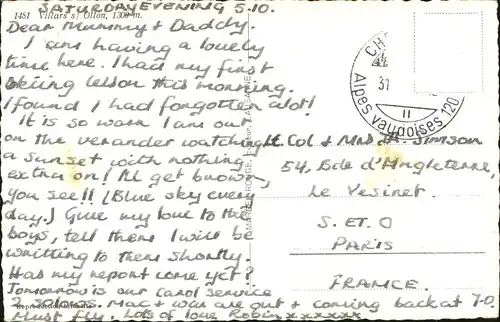 SATURDAY EVENING 5.10.
1451 Villars s/ Ollon, 1300 m.
Dear Mummy + Daddy.
I am having a lovely
time here. I had my first
skiing lesson this morning.
I found I had forgotten alot!
It is so warm I am out
on the verander watching
a sunset with nothing
extra on! I'll get brown
you see!! (Blue sky every
day.) Give my love to the
boys, tell them I will be
writting to them shortly.
Has my report come yet?
Tomorrow is our carol service
2 solo's. Mac + wav are out + coming back at 7.0.
Must fly. Lots of love Robin xxxxxxx
Lt. Col + Mrs Simson
54, Bde d'Angleterre,
Le Vesinet
S. ET. O
PARIS
FRANCE.
CH
31
II
Alpes vaudoises 120